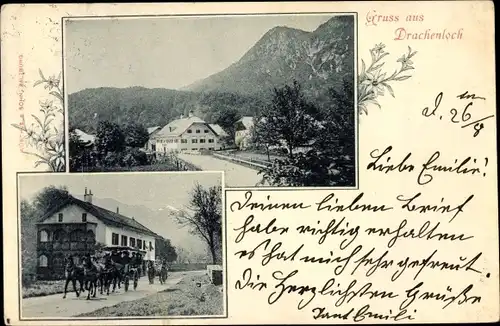 Gruss aus
Drachenloch
d. 26/8
Liebe Emilie!
Deinen lieben Brief
habe richtig erhalten
es hat mich sehr gefreut
Die Herzlichsten Grüße
Tant Emili